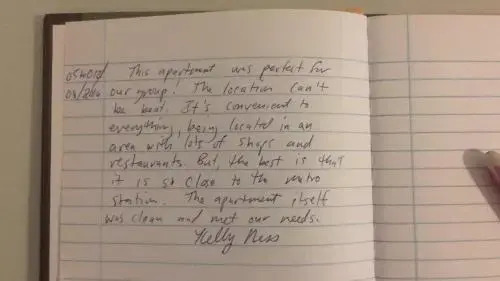 This apartment was perfect for
our group! The location can't
be beat. It's convenient to
everything, being located in an
area with lots of shops and
restaurants. But, the best is that
it is so close to the metro
station. The apartment itself
was clean and met our needs.
Kelly